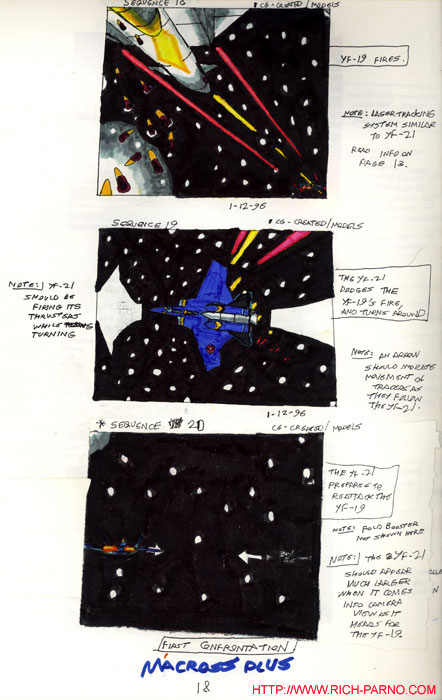 SEQUENCE 18
CG-CREATED/MODELS
YF-19 FIRES.
NOTE: LASER TRACKING
SYSTEM SIMILAR
TO YF-21
READ INFO ON
PAGE 13.
1-12-96
SEQUENCE 19
CG-CREATED/MODELS
NOTE: YF-21
SHOULD BE
FIRING ITS
THRUSTERS
WHILE
TURNING
THE YF-21
DODGES THE
YF-19'S FIRE,
AND TURNS AROUND
NOTE: AN ARROW
SHOULD INDICATE
MOVEMENT OF
TRACERS AS
THEY FOLLOW
THE YF-21.
1-12-96
* SEQUENCE 21
CG-CREATED/MODELS
THE YF-21
PREPARES TO
REATTACK THE
YF-19
NOTE: FOLD BOOSTER
NOT SHOWN HERE
NOTE: THE YF-21
SHOULD APPEAR
MUCH LARGER
WHEN IT COMES
INTO CAMERA
VIEW AS IT
HEADS FOR
THE YF-19.
FIRST CONFRONTATION
MACROSS PLUS
18
HTTP://WWW.RICH-PARNO.COM